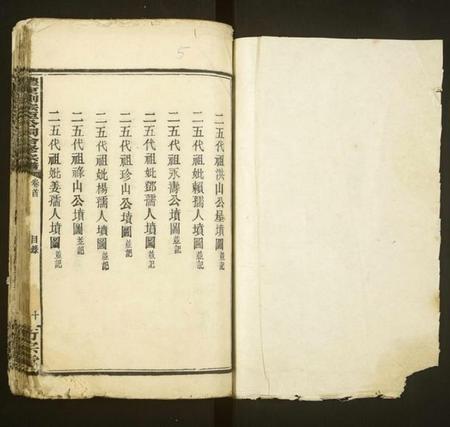 5
二五代祖洪山公墳圖並記
二五代祖妣賴孺人墳圖並記
二五代祖永壽公墳圖並記
二五代祖妣鄧孺人墳圖並記
二五代祖珍山公墳圖並記
二五代祖妣楊孺人墳圖並記
二五代祖祿山公墳圖並記
二五代祖妣姜孺人墳圖並記
卷首
目錄
十